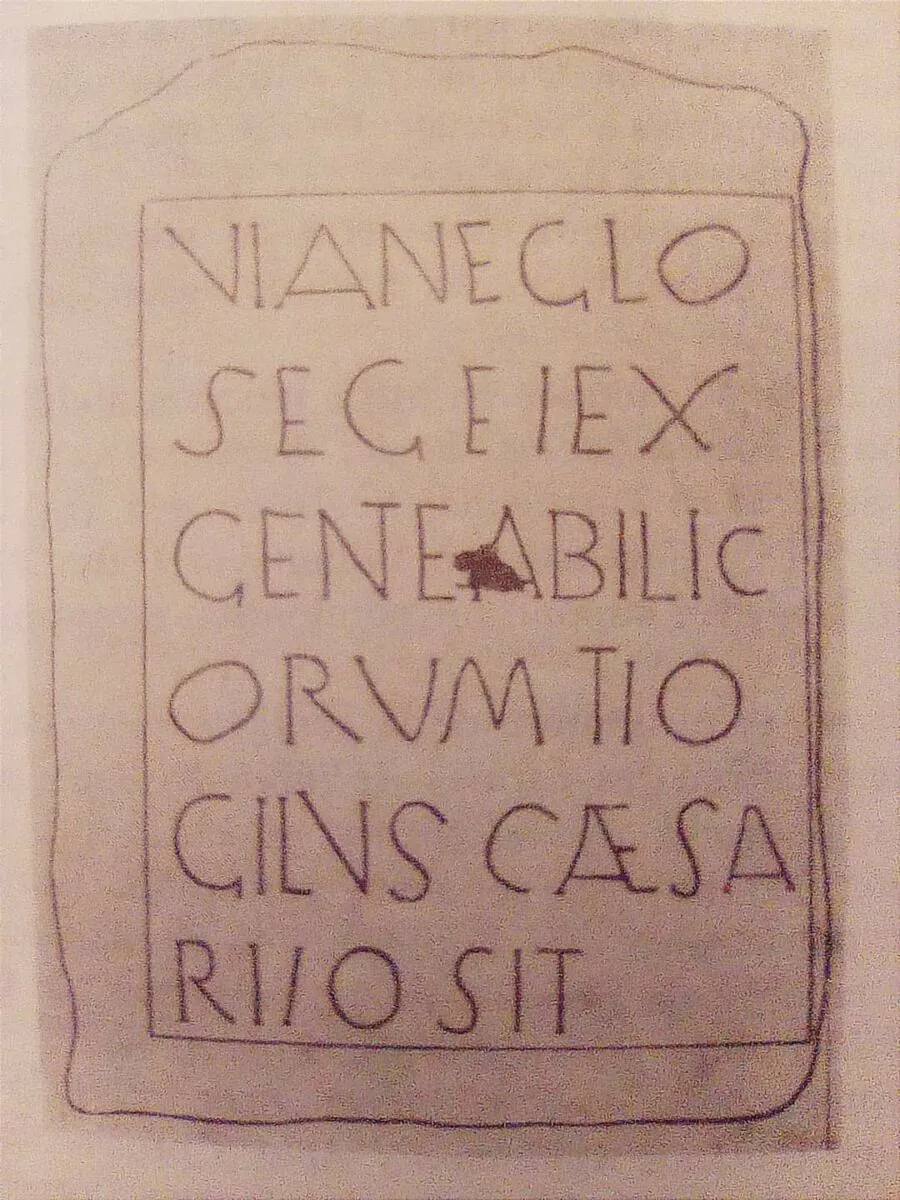 VIANEGLO
SEGEIEX
GENTEABILIC
ORVM TIO
GILVS CÆSA
RII/O SIT